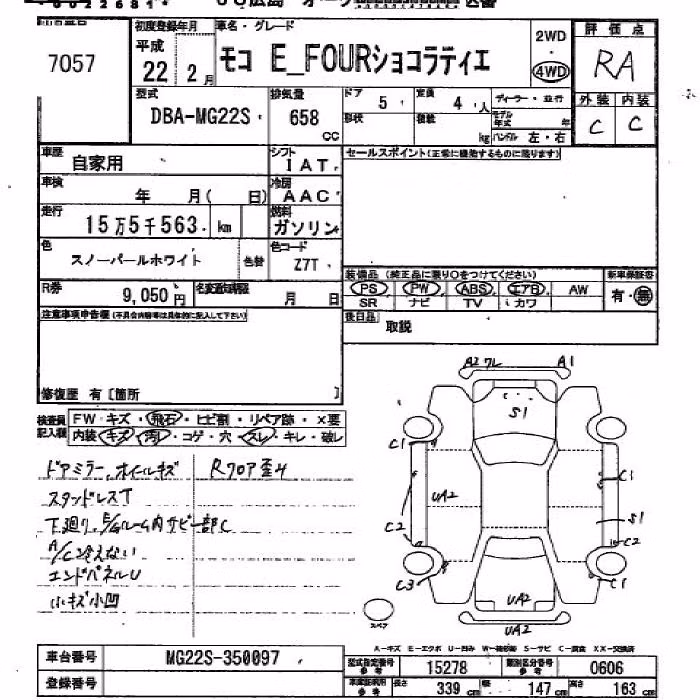 7057
初度登録年月
平成
22年2月
車名・グレード
モコ E_FOURショコラティエ
2WD
・
4WD
評価点
RA
外装 内装
C C
型式
DBA-MG22S
排気量
658
CC
ドア 5
定員 4人
ディーラー・並行
形状
積載 kg
モデル年式 年
ハンドル 左・右
車歴
自家用
シフト
IAT
セールスポイント(正常に機能するものに限ります)
車検
年 月( 日)
冷房
AAC
走行
15万5千563 km
燃料
ガソリン
色
スノーパールホワイト
色替
色コード
Z7T
装備品(純正品に限り○をつけてください)
新車保証書
PS PW ABS エアB AW
有・無
SR ナビ TV カワ
R券
9,050円
名変通知期限
月 日
後日品
取説
注意事項申告欄(不具合内容等は具体的に記入して下さい)
修復歴 有〔箇所 〕
検査員記入欄
FW キズ・飛石・ヒビ割・リペア跡・×要
内装 キズ・汚・コゲ・穴・スレ・キレ・破レ
ドアミラー、ホイールキズ
Rフロア歪み
スタッドレスT
下廻り、E/gルーム内サビ一部C
A/C冷えない
エンドパネルU
小キズ小凹
A2 ワレ A1
S1
C1
C1
UA2
S1
C2
C2
C3
C1
UA2
UA2
スペア
A-キズ E-エクボ U-凹み W-補修跡 S-サビ C-腐食 XX-交換済
車台番号
MG22S-350097
登録番号
型式指定番号
参考
15278
類別区分番号
参考
0606
長さ 339 cm
幅 147 cm
高さ 163 cm